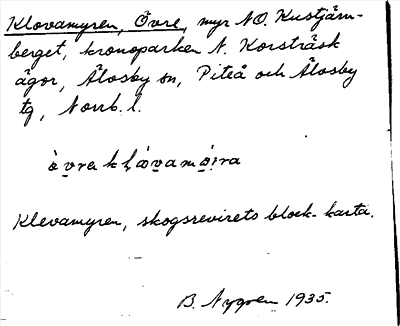 Klovamyren, Övre, myr NO. Kustjärn-
berget, kronoparken N. Korsträsk
ägor, Älvsby sn, Piteå och Älvsby
tg, Norrb. l.
Klevamyren, skogsrevirets block-karta.
B. Nygren 1935.